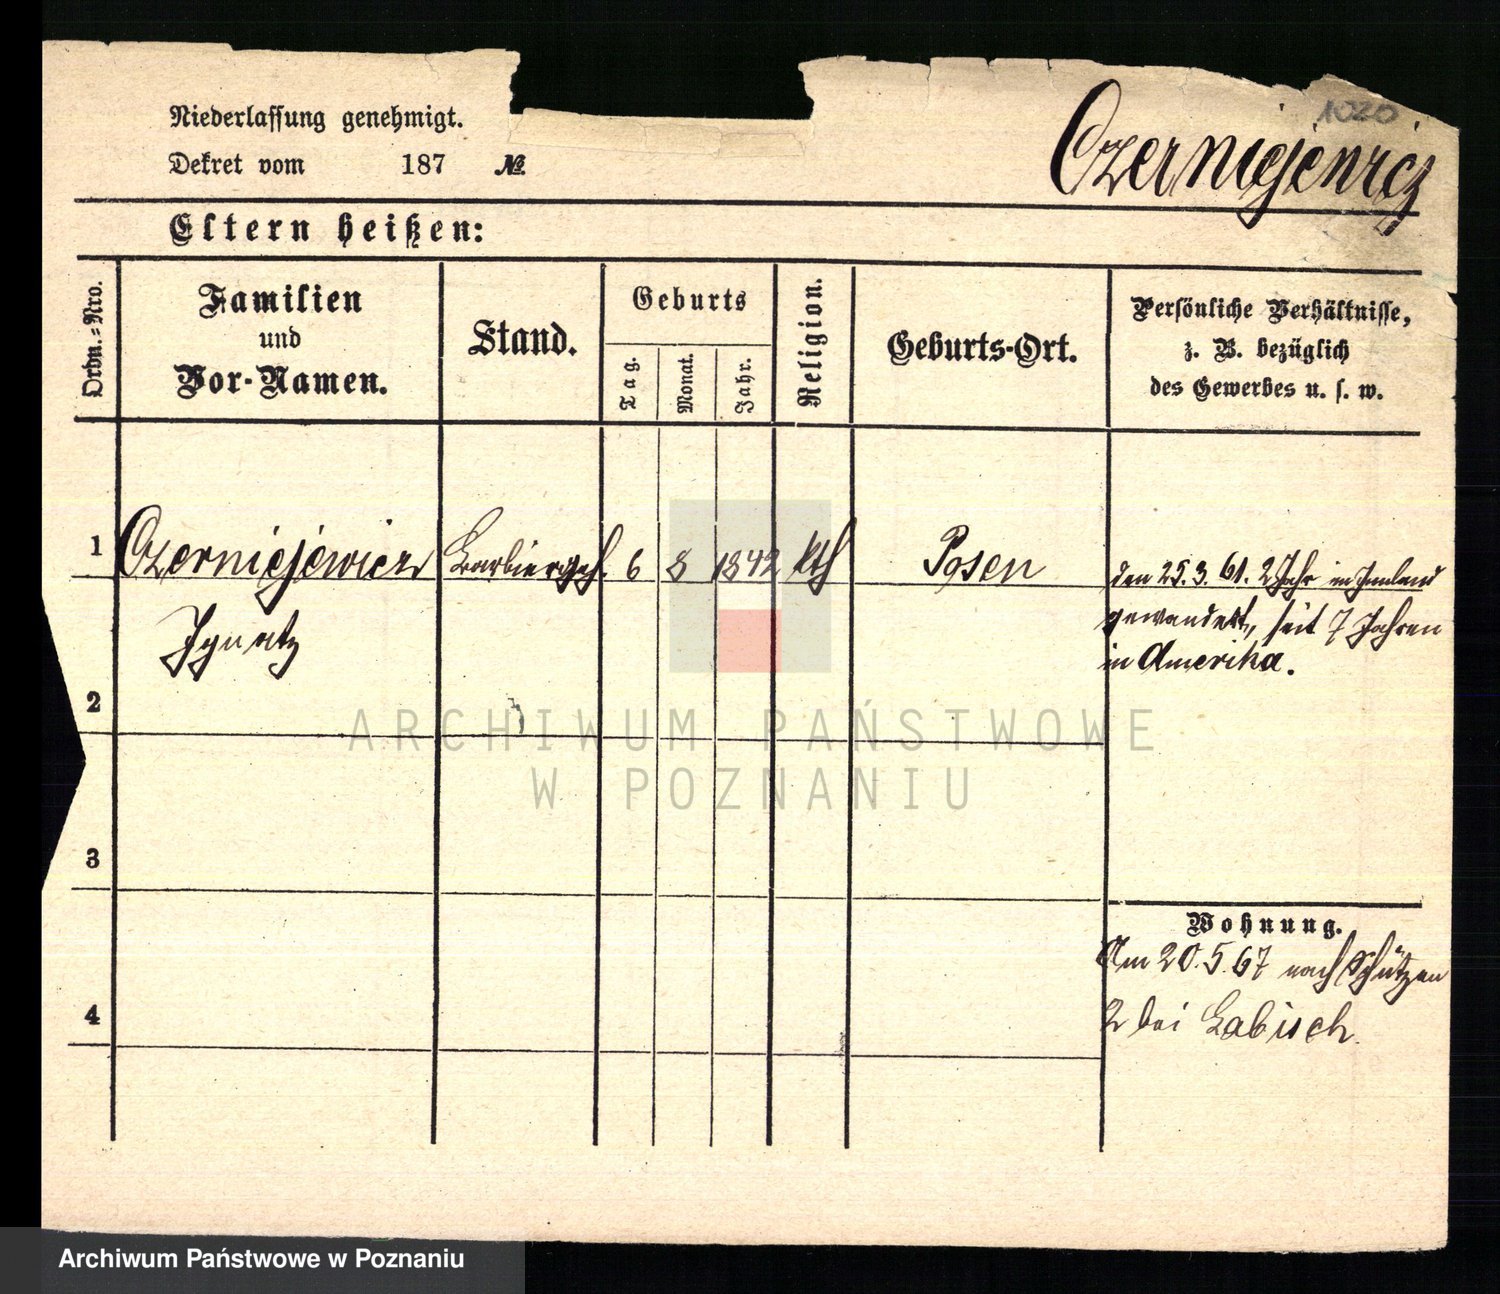 1020
Niederlassung genehmigt.
Dekret vom 187 №
Czerniejewicz
Eltern heißen:
Ordn.-Nro.
Familien
und
Vor-Namen.
Stand.
Geburts
Tag.
Monat.
Jahr.
Religion.
Geburts-Ort.
Persönliche Verhältnisse,
z. B. bezüglich
des Gewerbes u. s. w.
1 Czerniejewicz Barbiergeh. 6 8 1842 kth Posen
Ignatz
den 25.3.61. 2 Jahr im Inland
gewandert, seit 7 Jahren
in Amerika.
2
ARCHIWUM PAŃSTWOWE
W POZNANIU
3
Wohnung.
Am 20.5.67 nach Schützen
2 bei Labisch.
4
Archiwum Państwowe w Poznaniu